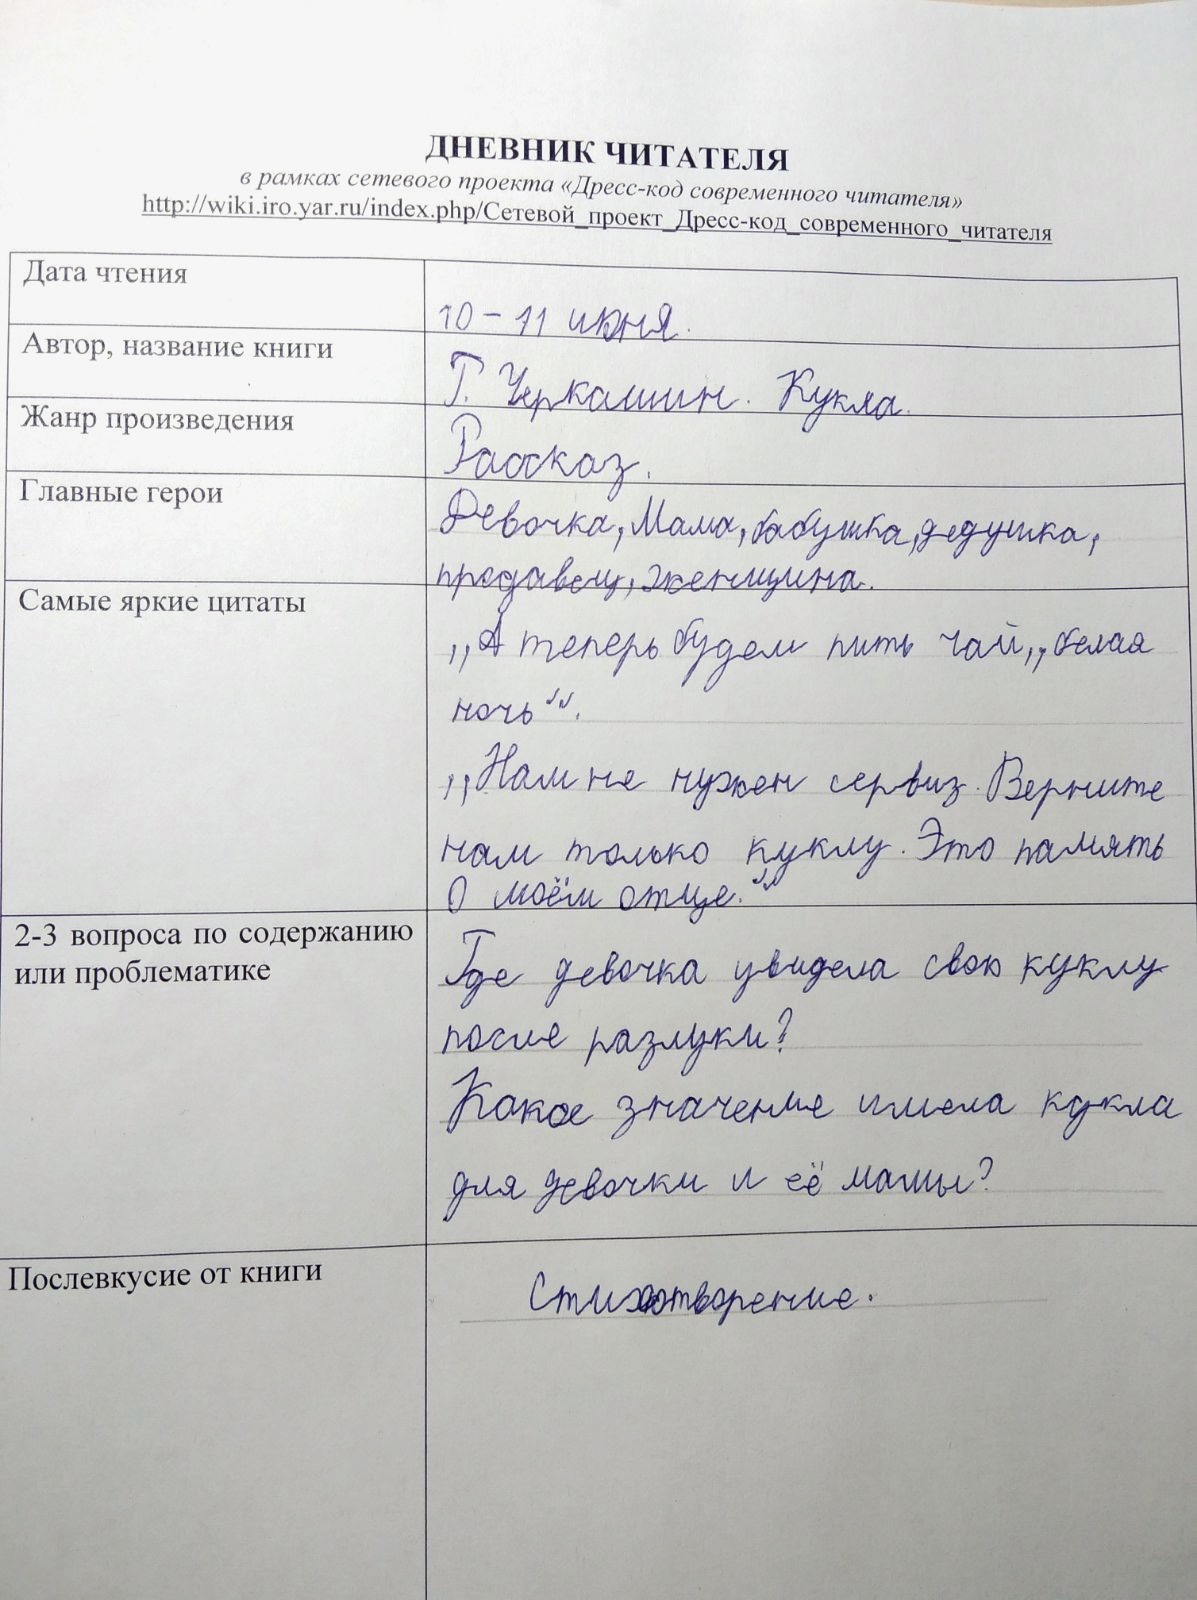 ДНЕВНИК ЧИТАТЕЛЯ
в рамках сетевого проекта «Дресс-код современного читателя»
http://wiki.iro.yar.ru/index.php/Сетевой_проект_Дресс-код_современного_читателя
Дата чтения
10 – 11 июня.
Автор, название книги
Г. Черкашин. Кукла.
Жанр произведения
Рассказ.
Главные герои
Девочка, Мама, бабушка, дедушка,
продавец, женщина.
Самые яркие цитаты
,,А теперь будем пить чай ,,белая
ночь““.
,,Нам не нужен сервиз. Верните
нам только куклу. Это память
О моём отце.“
2-3 вопроса по содержанию
или проблематике
Где девочка увидела свою куклу
после разлуки?
Какое значение имела кукла
для девочки и её мамы?
Послевкусие от книги
Стихотворение.